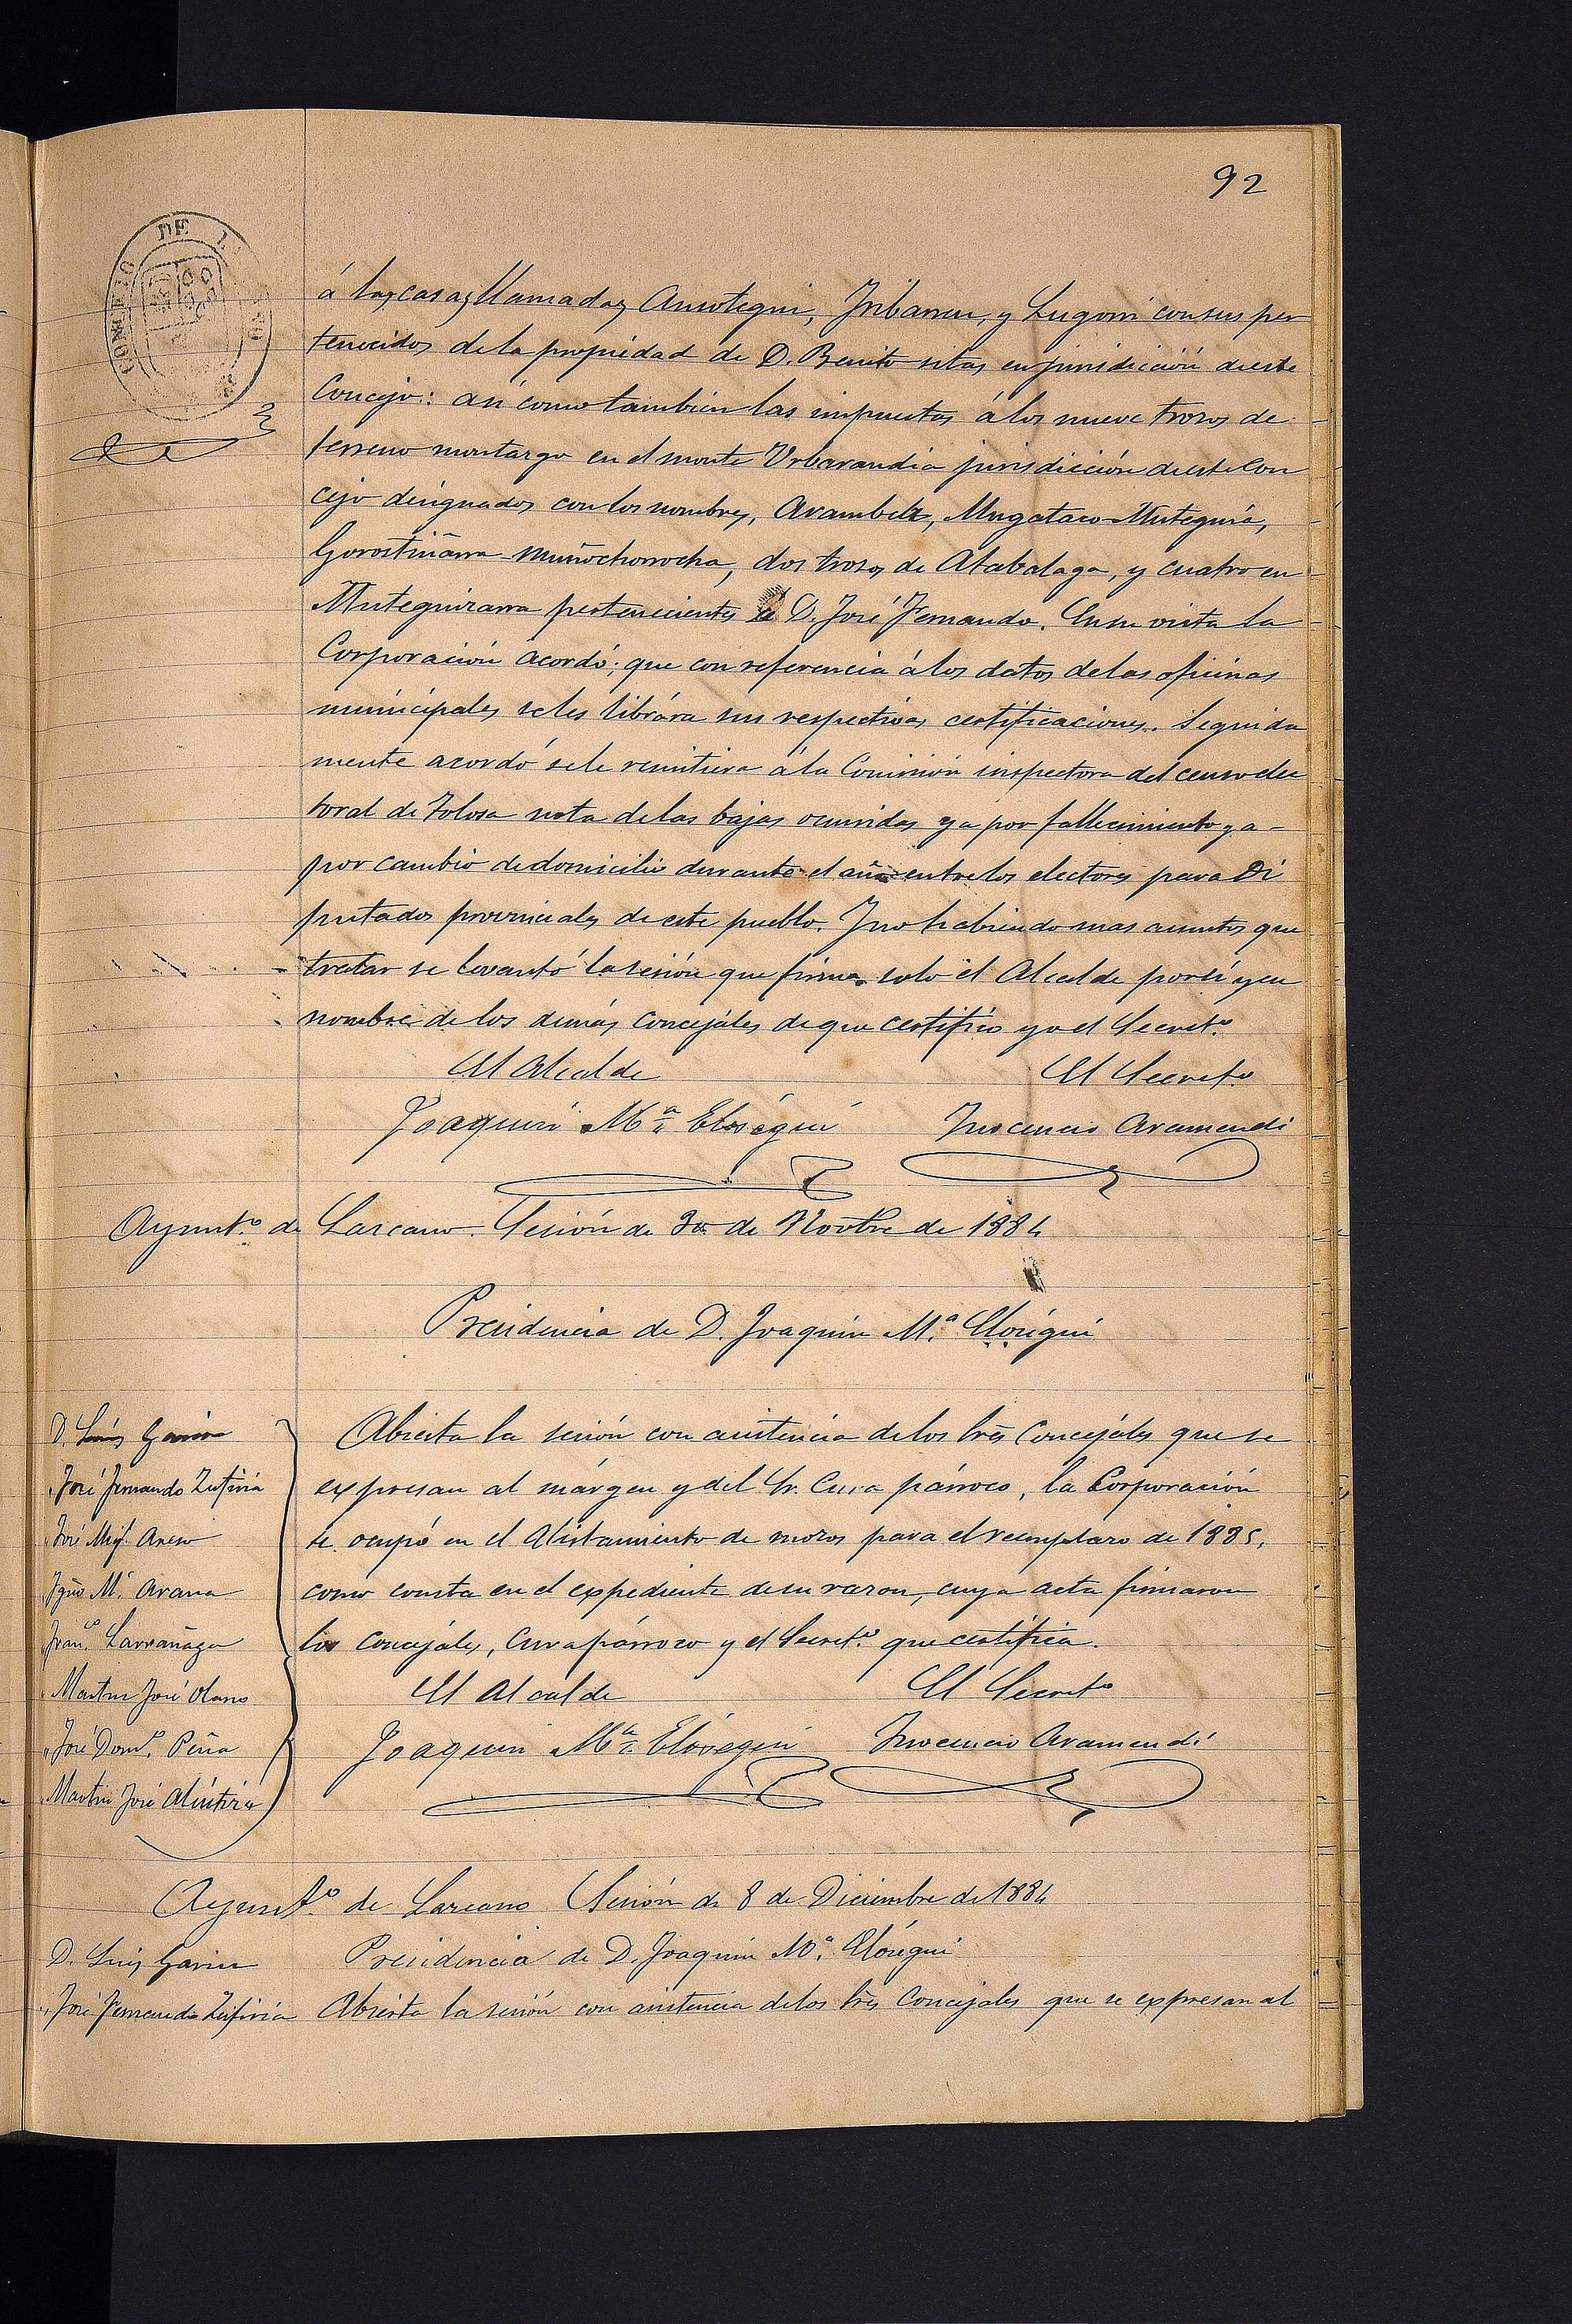 92
CONCEJO DE L
á las casas llamadas Ansotegui, Iribarren, y Lugorri con sus per
tenecidos de la propiedad de D. Benito sitas en jurisdicción de este
Concejo: así como tambien las impuestas á los nueve trozos de
terreno montazgo en el monte Urbarandia jurisdicción de este Con
cejo designados con los nombres, Arambelz, Mugataco-Muteguia,
Gorostiñarra Muñochorrocha, dos trozos de Atabalaga, y cuatro en
Muteguizarra pertenecientes á D. José Fernando. En su vista la
Corporación acordó; que con referencia á los datos de las oficinas
municipales se les librára sus respectivas certificaciones. Seguida
mente acordó se le remitiera á la Comisión inspectora del censo elec
toral de Tolosa nota de las bajas ocurridas ya por fallecimiento ya
por cambio de domicilio durante el año entre los electores para Di
putados provinciales de este pueblo. Y no habiendo mas asuntos que
tratar se levantó la sesión que firma solo el Alcalde por sí y en
nombre de los demás Concejáles de que certifico yo el Secret.o
El Alcalde El Secret.o
Joaquin M.a Elosegui Inocencio Aramendi
Ayunt.o de Lazcano. Sesión de 30 de Novbre de 1884
Presidencia de D. Joaquin M.a Elósegui
D. Luis Garin
" José Fernando Zufiria
" José Mig.l
" Ygn.o M.a Arana
" Fran.co Larrañaga
" Martin José Olano
" José Dom.o Peña
" Martin José
Abierta la sesión con asistencia de los Srēs Concejáles que se
expresan al márgen y del Sr. Cura párroco, la Corporación
se ocupó en el Alistamiento de mozos para el reemplazo de 1885,
como consta en el expediente de su razon, cuya acta firmaron
los Concejáles, Cura párroco y el Secret.o que certifica.
El Alcalde El Secret.o
Joaquin M.a Elósegui Inocencio Aramendi
Ayunt.o de Lazcano Sesión de 8 de Diciembre de 1884
D. Luis Garin Presidencia de D. Joaquin M.a Elósegui
" José Fernando Zufiria Abierta la sesión con asistencia de los Srēs Concejales que se expresan al